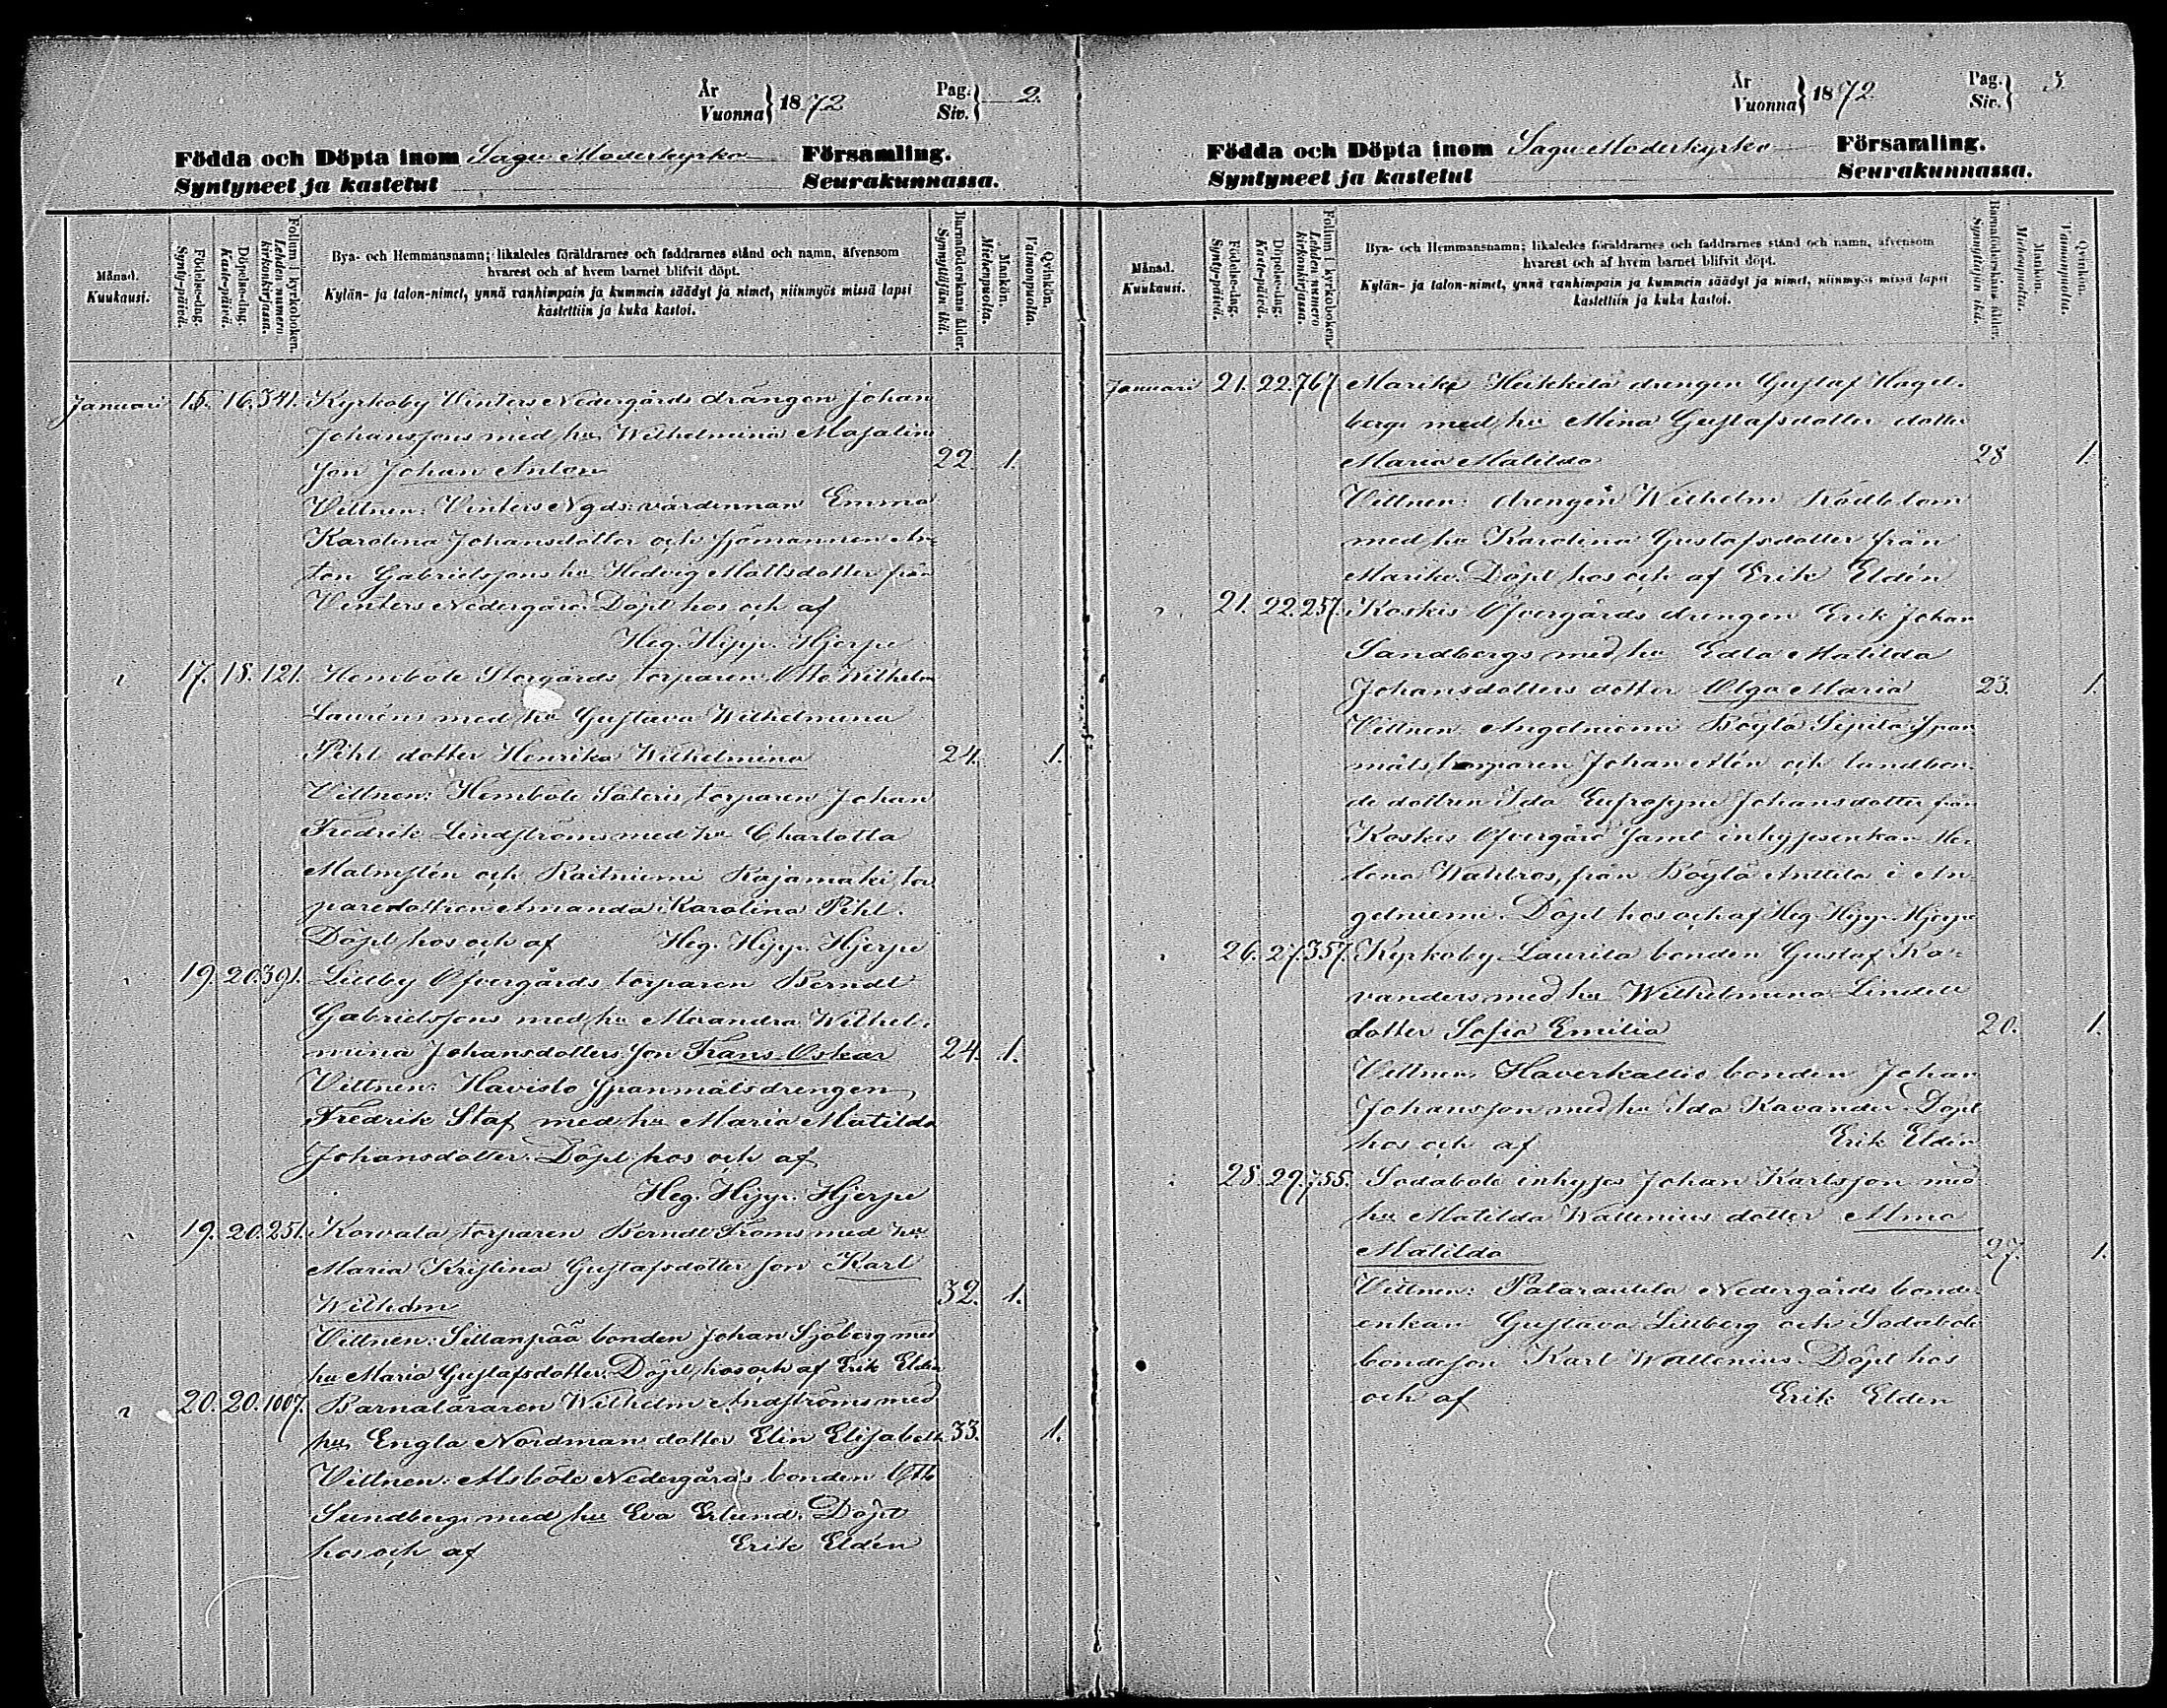 År
Vuonna} 1872 Pag.
Siv.} 2.
Födda och Döpta inom Sagu Moderkyrko Församling.
Syntyneet ja kastetut Seurakunnassa.
Månad.
Kuukausi.
Födelse-dag.
Synty-päivä.
Döpelse-dag.
Kaste-päivä.
Folium i kyrkoboken.
Lehden numero kirkonkirjassa.
Bya- och Hemmansnamn; likaledes föräldrarnes och faddrarnes stånd och namn, äfvensom
hvarest och af hvem barnet blifvit döpt.
Kylän- ja talon-nimet, ynnä vanhimpain ja kummein säädyt ja nimet, niinmyös missä lapsi
kastettiin ja kuka kastoi.
Barnaföderskans ålder.
Synnyttäjän ikä.
Mankön.
Miehenpuolia.
Qvinkön.
Vaimonpuolia.
Januari 15. 16. 341. Kyrkoby Winters Nedergårds drängen Johan
Johanssons med hu Wilhelmina Majalin
son Johan Anton 22. 1.
Vittnen: Vinters Ngds: värdinnan Emma
Karolina Johansdotter och sjömannen An-
ton Gabrielssons hu Hedvig Mattsdotter från
Vinters Nedergård. Döpt hos och af
Heg. Hipp. Hjerpe
" 17. 18. 121. Hemböle Storgårds torparen Otto Wilhelm
Lauréns med hu Gustava Wilhelmina
Pihl dotter Henrika Wilhelmina 24. 1.
Vittnen: Hemböle Säteris torparen Johan
Fredrik Lindströms med hu Charlotta
Malmstén och Raitniemi Kajamäki tor
paredottren Amanda Karolina Pihl.
Döpt hos och af Heg. Hipp. Hjerpe
" 19. 20. 391. Lillby Öfvergårds torparen Berndt
Gabrielssons med hu Alexandra Wilhel-
mina Johansdotters son Frans Oskar 24. 1.
Vittnen: Havisto spanmålsdrengen
Fredrik Staf med hu Maria Matilda
Johansdotter. Döpt hos och af
Heg. Hipp. Hjerpe
" 19. 20. 251. Kowala torparen Berndt Froms med hu
Maria Kristina Gustafsdotter son Karl
Wilhelm 32. 1.
Vittnen: Sillanpää bonden Johan Sjöberg med
hu Maria Gustafsdotter. Döpt hos och af Erik Eldén
" 20. 20. 1007. Barnaläraren Wilhelm Andströms med
hu Engla Nordman dotter Elin Elisabeth 33. 1.
Vittnen: Alsböle Nedergårds bonden Otto
Sundberg med hu Eva Erlund. Döpt
hos och af Erik Eldén
År
Vuonna} 1872 Pag.
Siv.} 3.
Födda och Döpta inom Sagu Moderkyrko Församling.
Syntyneet ja kastetut Seurakunnassa.
Månad.
Kuukausi.
Födelse-dag.
Synty-päivä.
Döpelse-dag.
Kaste-päivä.
Folium i kyrkoboken.
Lehden numero kirkonkirjassa.
Bya- och Hemmansnamn; likaledes föräldrarnes och faddrarnes stånd och namn, äfvensom
hvarest och af hvem barnet blifvit döpt.
Kylän- ja talon-nimet, ynnä vanhimpain ja kummein säädyt ja nimet, niinmyös missä lapsi
kastettiin ja kuka kastoi.
Barnaföderskans ålder.
Synnyttäjän ikä.
Mankön.
Miehenpuolia.
Qvinkön.
Vaimonpuolia.
Januari 21. 22. 767 Marike Heikkilä drengen Gustaf Hagel-
bergs med hu Mina Gustafsdotter dotter
Maria Matilda 28 1.
Vittnen: drengen Wilhelm Rödblom
med hu Karolina Gustafsdotter från
Marike. Döpt hos och af Erik Eldén
" 21. 22. 257. Koskis Öfvergårds drengen Erik Johan
Sandbergs med hu Edla Matilda
Johansdotters dotter Olga Maria 23. 1.
Vittnen Angelniemi Böylä Sipilä span
måls torparen Johan Alén och landbon-
de dottren Ida Eufrosyne Johansdotter från
Koskis Öfvergård samt inhysesenkan He-
lena Wahlros, från Böylä Anttila i An
gelniemi. Döpt hos och af Heg. Hipp. Hjerpe
" 26. 27. 357. Kyrkoby Laurila bonden Gustaf Ka-
vanders med hu Wilhelmina Lindell
dotter Sofia Emilia 20. 1.
Vittnen Haverkallio bonden Johan
Johansson med hu Ida Kavander. Döpt
hos och af Erik Eldén
" 28. 29. 755. Sodaböle inhyses Johan Karlsson med
hu Matilda Wallenius dotter Alma
Matilda 27. 1.
Vittnen: Palarautila Nedergårds bonde
enkan Gustava Lillberg och Sodaböle
bondeson Karl Wallenius. Döpt hos
och af Erik Eldén